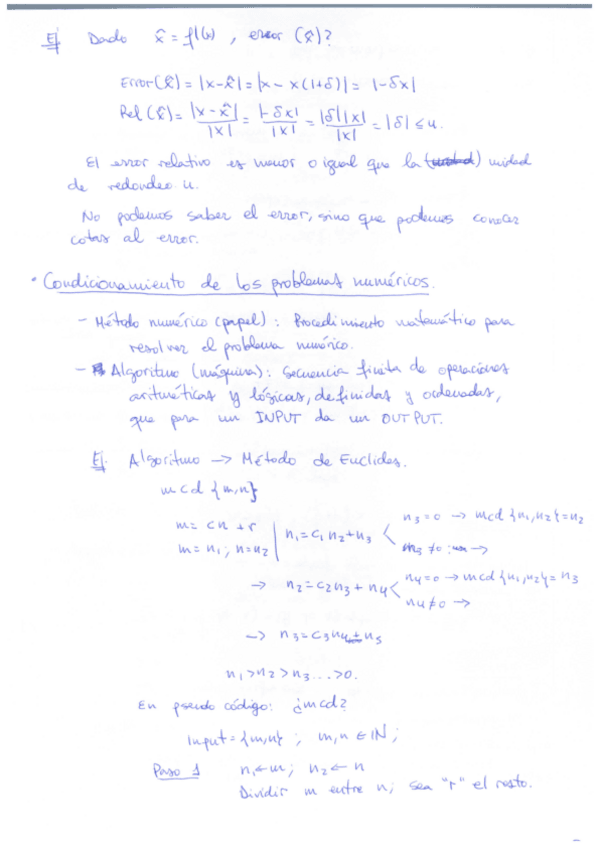 Ej. Dado x̂ = fl(x), error (x̂)?
Error(x̂) = |x-x̂| = |x - x(1+δ)| = |-δx|
Rel(x̂) = |x-x̂|/|x| = |-δx|/|x| = |δ||x|/|x| = |δ| ≤ u.
El error relativo es menor o igual que la () unidad
de redondeo u.
No podemos saber el error, sino que podemos conocer
cotas al error.
· Condicionamiento de los problemas numéricos.
- Método numérico (papel): Procedimiento matemático para
resolver el problema numérico.
- Algoritmo (máquina): Secuencia finita de operaciones
aritméticas y lógicas, definidas y ordenadas,
que para un INPUT da un OUTPUT.
Ej. Algoritmo → Método de Euclides.
mcd {m,n}
m = cn + r
m = n₁; n = n₂
n₁ = c₁n₂ + n₃
n₃ = 0 → mcd {n₁,n₂} = n₂
n₃ ≠ 0 : →
→ n₂ = c₂n₃ + n₄
n₄ = 0 → mcd {n₁,n₂} = n₃
n₄ ≠ 0 →
→ n₃ = c₃n₄ + n₅
n₁ > n₂ > n₃ ... > 0.
En pseudo código: ¿mcd?
Input = {m,n} ; m,n ∈ IN;
Paso 1 n₁ ← m; n₂ ← n
Dividir m entre n; sea "r" el resto.